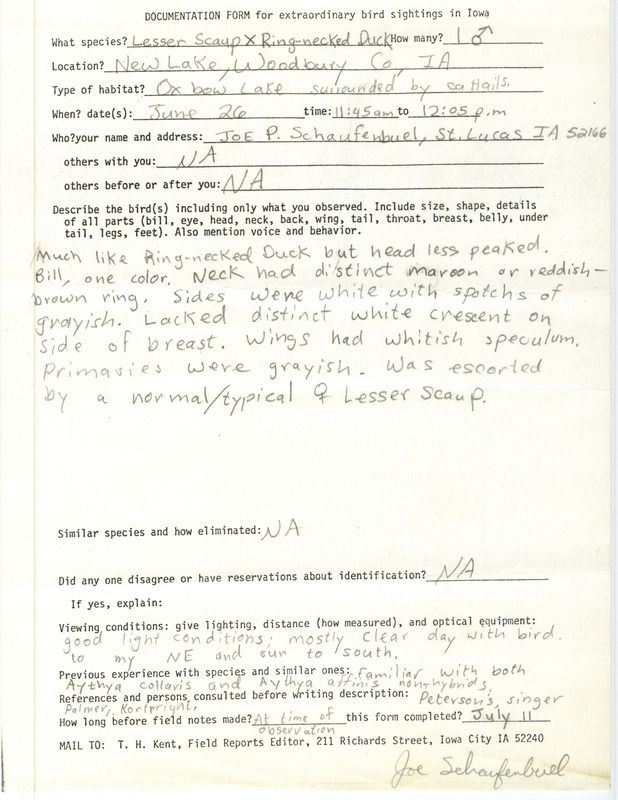 DOCUMENTATION FORM for extraordinary bird sightings in Iowa
What species? Lesser Scaup X Ring-necked Duck How many? 1 ♂
Location? New Lake, Woodbury Co, IA
Type of habitat? Oxbow Lake surrounded by cattails.
When? date(s): June 26 time: 11:45am to 12:05 p.m
Who? your name and address: JOE P. Schaufenbuel, St. Lucas IA 52166
others with you: NA
others before or after you: NA
Describe the bird(s) including only what you observed. Include size, shape, details
of all parts (bill, eye, head, neck, back, wing, tail, throat, breast, belly, under
tail, legs, feet). Also mention voice and behavior.
Much like Ring-necked Duck but head less peaked.
Bill, one color. Neck had distinct maroon or reddish-
brown ring. Sides were white with spotchs of
grayish. Lacked distinct white crescent on
side of breast. Wings had whitish speculum.
Primaries were grayish. Was escorted
by a normal/typical ♀ Lesser Scaup.
Similar species and how eliminated: NA
Did any one disagree or have reservations about identification? NA
If yes, explain:
Viewing conditions: give lighting, distance (how measured), and optical equipment:
good light conditions; mostly clear day with bird
to my NE and sun to south.
Previous experience with species and similar ones: familiar with both
Aythya collaris and Aythya affinis non-hybrids.
References and persons consulted before writing description: Peterson's, singer
Palmer, Kortright,
How long before field notes made? At time of this form completed? July 11
observation
MAIL TO: T. H. Kent, Field Reports Editor, 211 Richards Street, Iowa City IA 52240
Joe Schaufenbuel